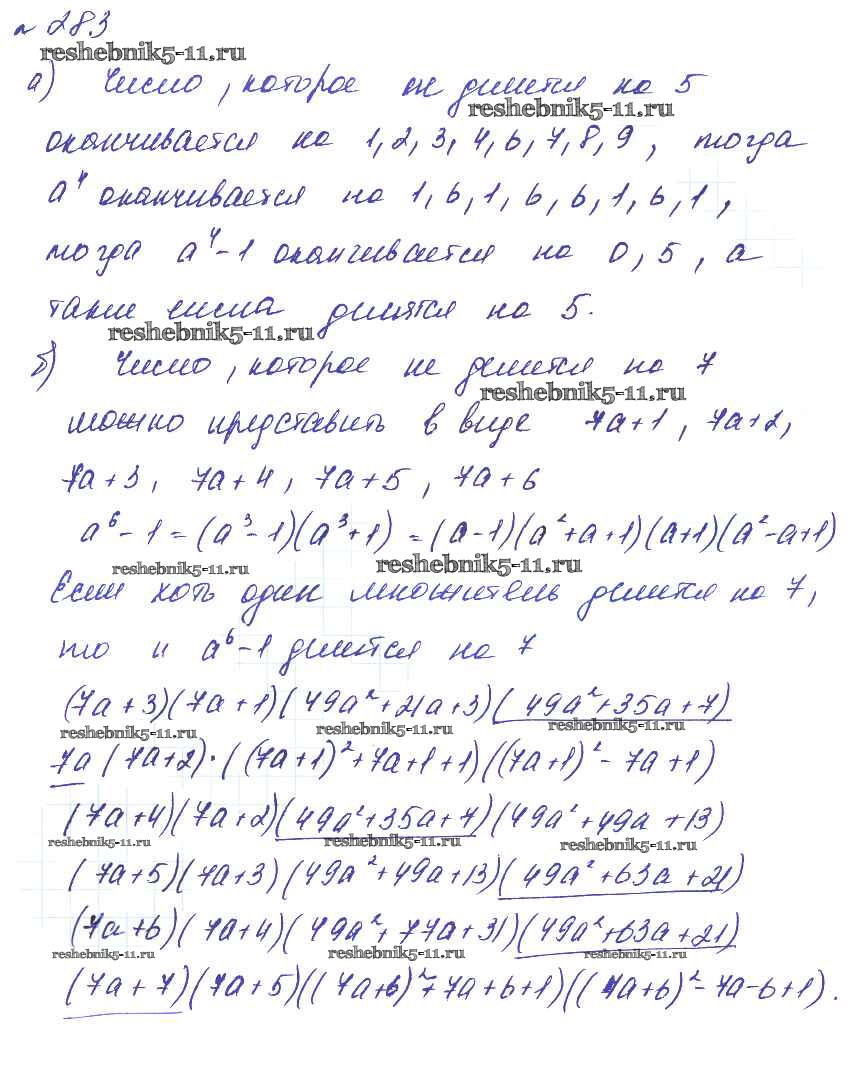 № 283
reshebnik5-11.ru
а) Число, которое не делится на 5
reshebnik5-11.ru
оканчивается на 1, 2, 3, 4, 6, 7, 8, 9, тогда
a⁴ оканчивается на 1, 6, 1, 6, 6, 1, 6, 1,
тогда a⁴-1 оканчивается на 0, 5, а
такие числа делятся на 5.
reshebnik5-11.ru
б) Число, которое не делится на 7
reshebnik5-11.ru
можно представить в виде 7a+1, 7a+2,
7a+3, 7a+4, 7a+5, 7a+6
a⁶-1=(a³-1)(a³+1)=(a-1)(a²+a+1)(a+1)(a²-a+1)
reshebnik5-11.ru reshebnik5-11.ru
Если хоть один множитель делится на 7,
то и a⁶-1 делится на 7
(7a+3)(7a+1)(49a²+21a+3)(49a²+35a+7)
reshebnik5-11.ru reshebnik5-11.ru reshebnik5-11.ru
7a(7a+2)·((7a+1)²+7a+1+1)((7a+1)²-7a+1)
(7a+4)(7a+2)(49a²+35a+7)(49a²+49a+13)
reshebnik5-11.ru reshebnik5-11.ru reshebnik5-11.ru
(7a+5)(7a+3)(49a²+49a+13)(49a²+63a+21)
(7a+6)(7a+4)(49a²+77a+31)(49a²+63a+21)
reshebnik5-11.ru reshebnik5-11.ru reshebnik5-11.ru
(7a+7)(7a+5)((7a+6)²+7a+6+1)((7a+6)²-7a-6+1).